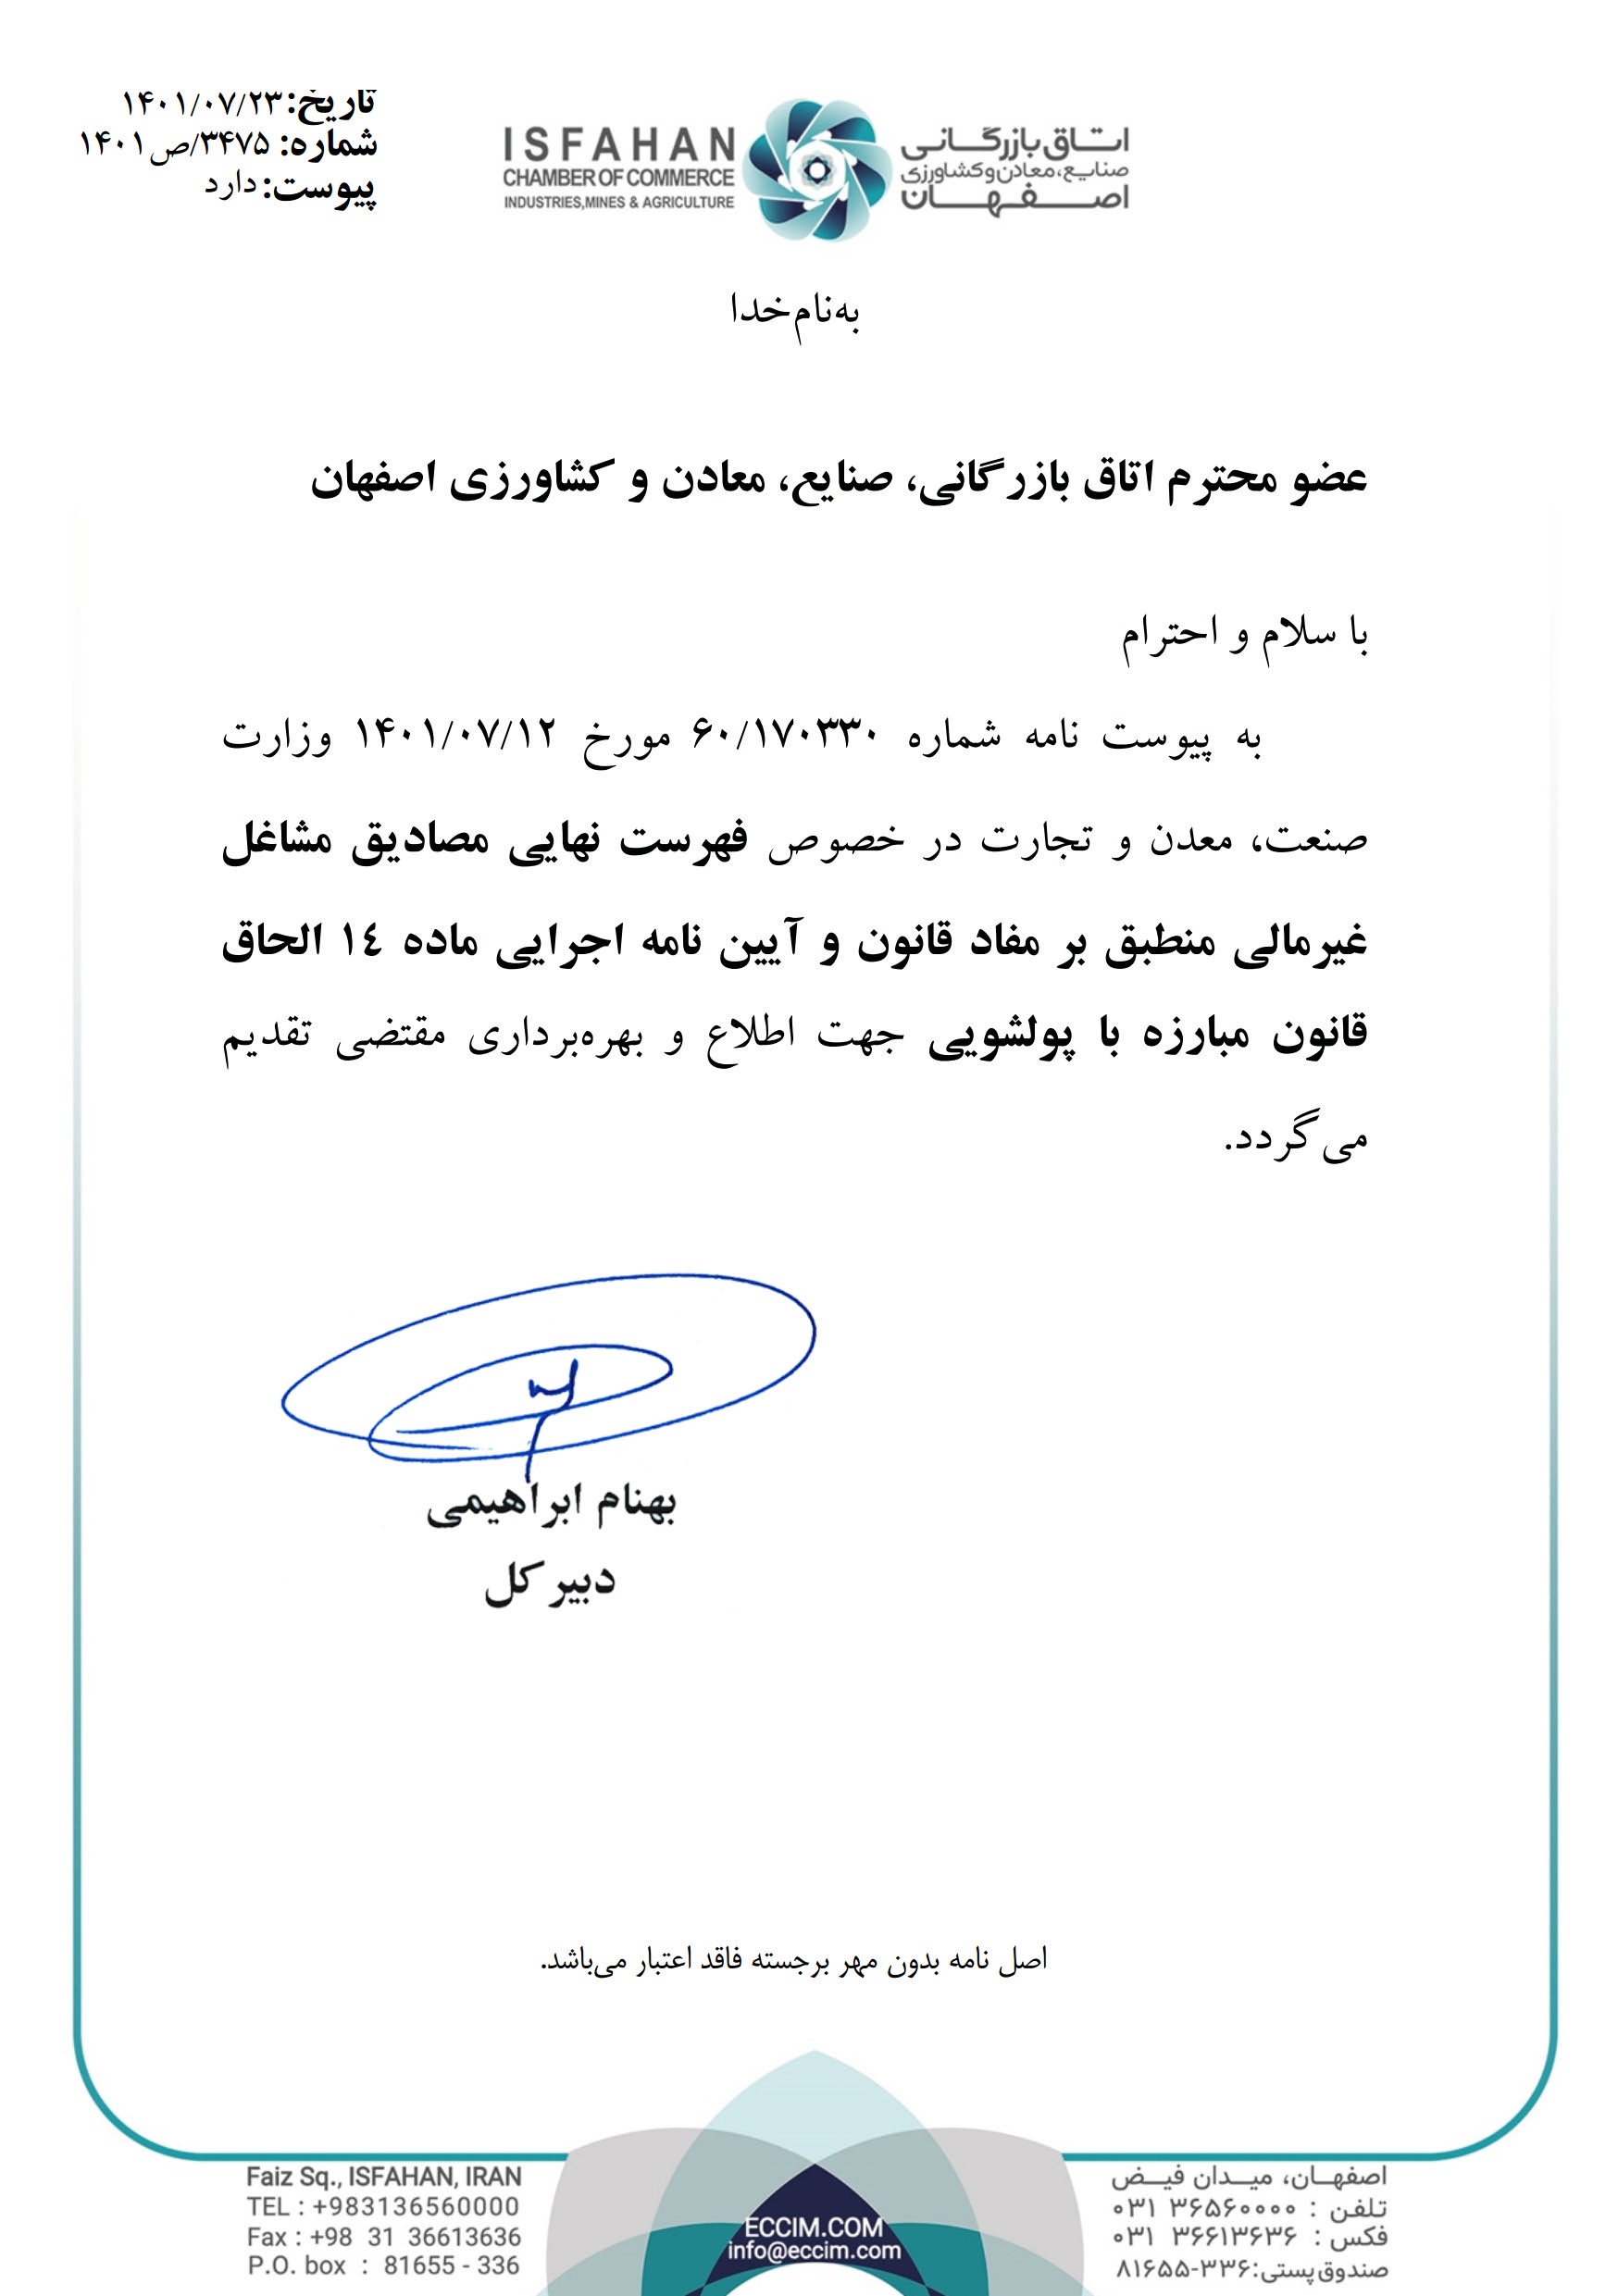 تاریخ: ۱۴۰۱/۰۷/۲۳
شماره: ۳۴۷۵/ص۱۴۰۱
پیوست: دارد
ISFAHAN
CHAMBER OF COMMERCE
INDUSTRIES,MINES & AGRICULTURE
اتـاق‌بازرگـانـی
صنایع،معادن‌وکشاورزی
اصـفـهـان
به‌نام‌خدا
عضو محترم اتاق بازرگانی، صنایع، معادن و کشاورزی اصفهان
با سلام و احترام
به پیوست نامه شماره ۶۰/۱۷۰۳۳۰ مورخ ۱۴۰۱/۰۷/۱۲ وزارت
صنعت، معدن و تجارت در خصوص فهرست نهایی مصادیق مشاغل
غیرمالی منطبق بر مفاد قانون و آیین نامه اجرایی ماده ١٤ الحاق
قانون مبارزه با پولشویی جهت اطلاع و بهره‌برداری مقتضی تقدیم
می‌گردد.
بهنام ابراهیمی
دبیر کل
اصل نامه بدون مهر برجسته فاقد اعتبار می‌باشد.
Faiz Sq., ISFAHAN, IRAN
TEL : +983136560000
Fax : +98 31 36613636
P.O. box : 81655 - 336
ECCIM.COM
info@eccim.com
اصفهـان، میـدان فیـض
تلفن : ۳۶۵۶۰۰۰۰ ۰۳۱
فکس : ۳۶۶۱۳۶۳۶ ۰۳۱
صندوق‌پستی:۳۳۶-۸۱۶۵۵